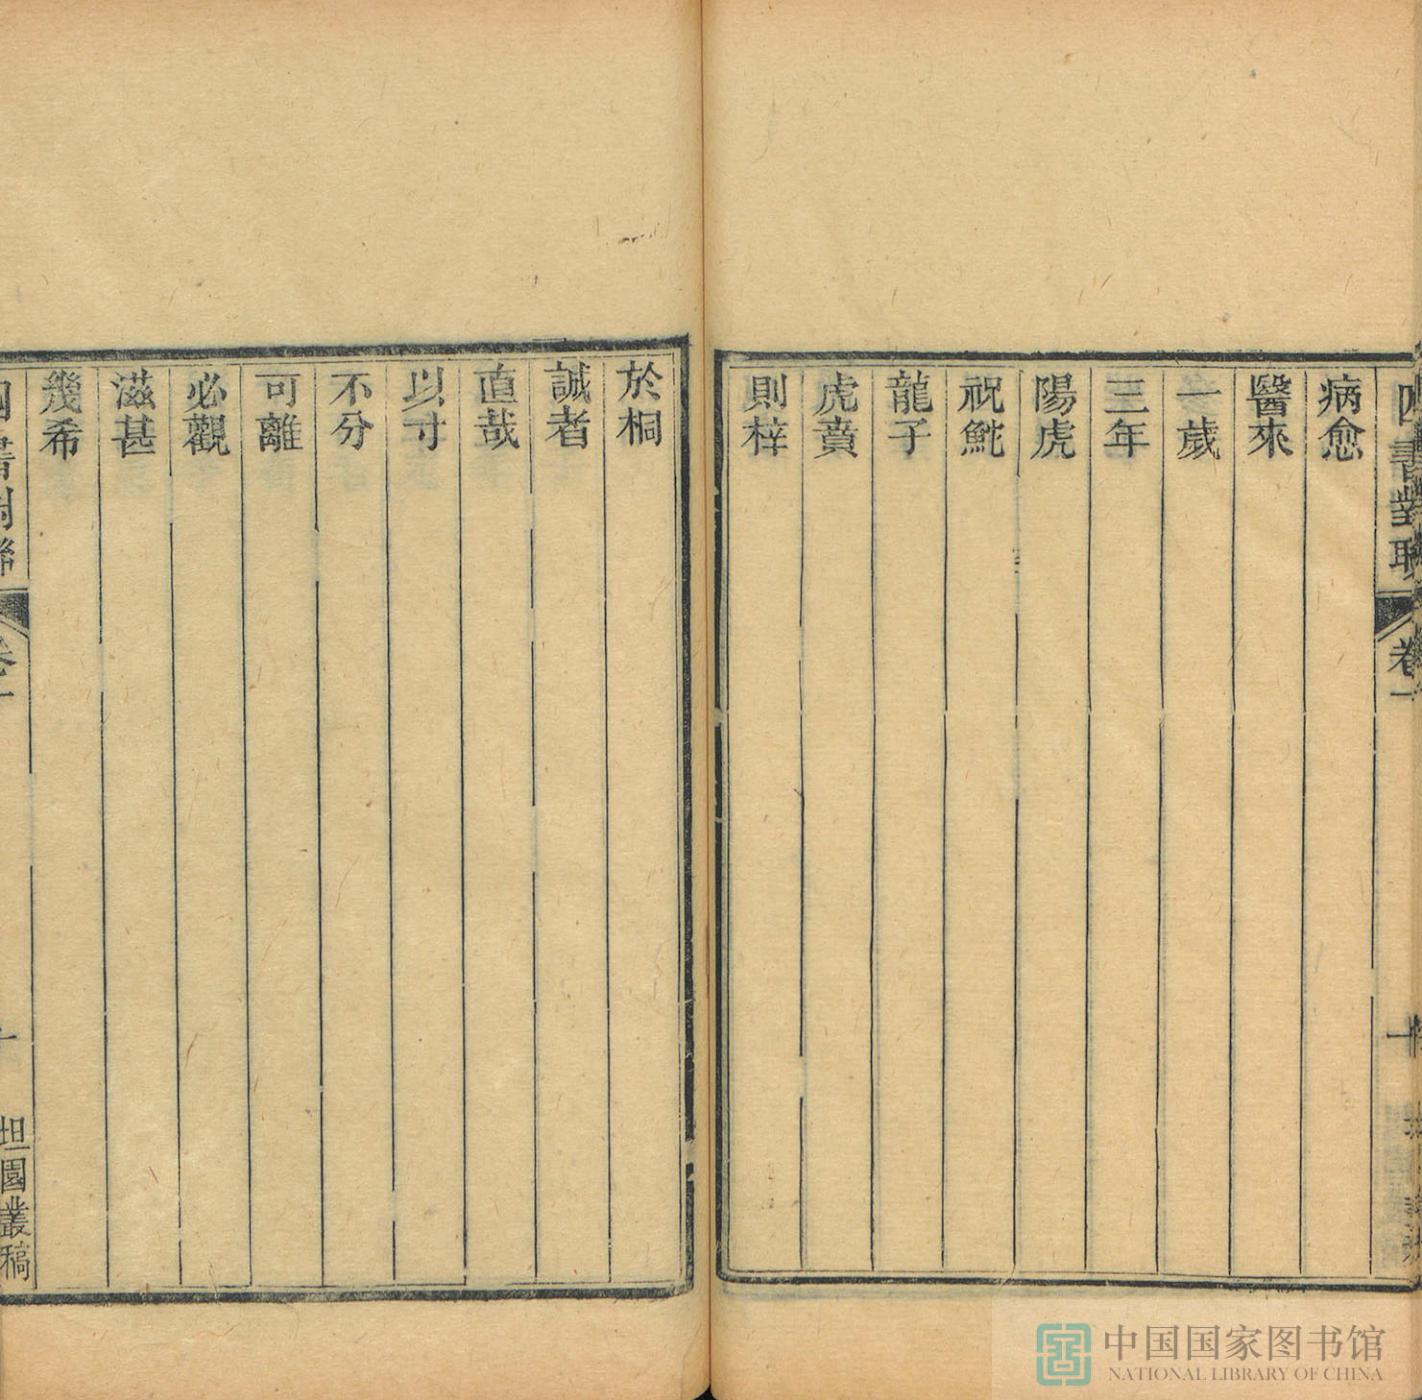 四書對聯 卷一
病愈
醫來
一歲
三年
陽虎
祝鮀
龍子
虎賁
則梓
於桐
誠者
直哉
以寸
不分
可離
必觀
滋甚
幾希
四書對聯 卷一
坦園叢稿
中国国家图书馆
NATIONAL LIBRARY OF CHINA